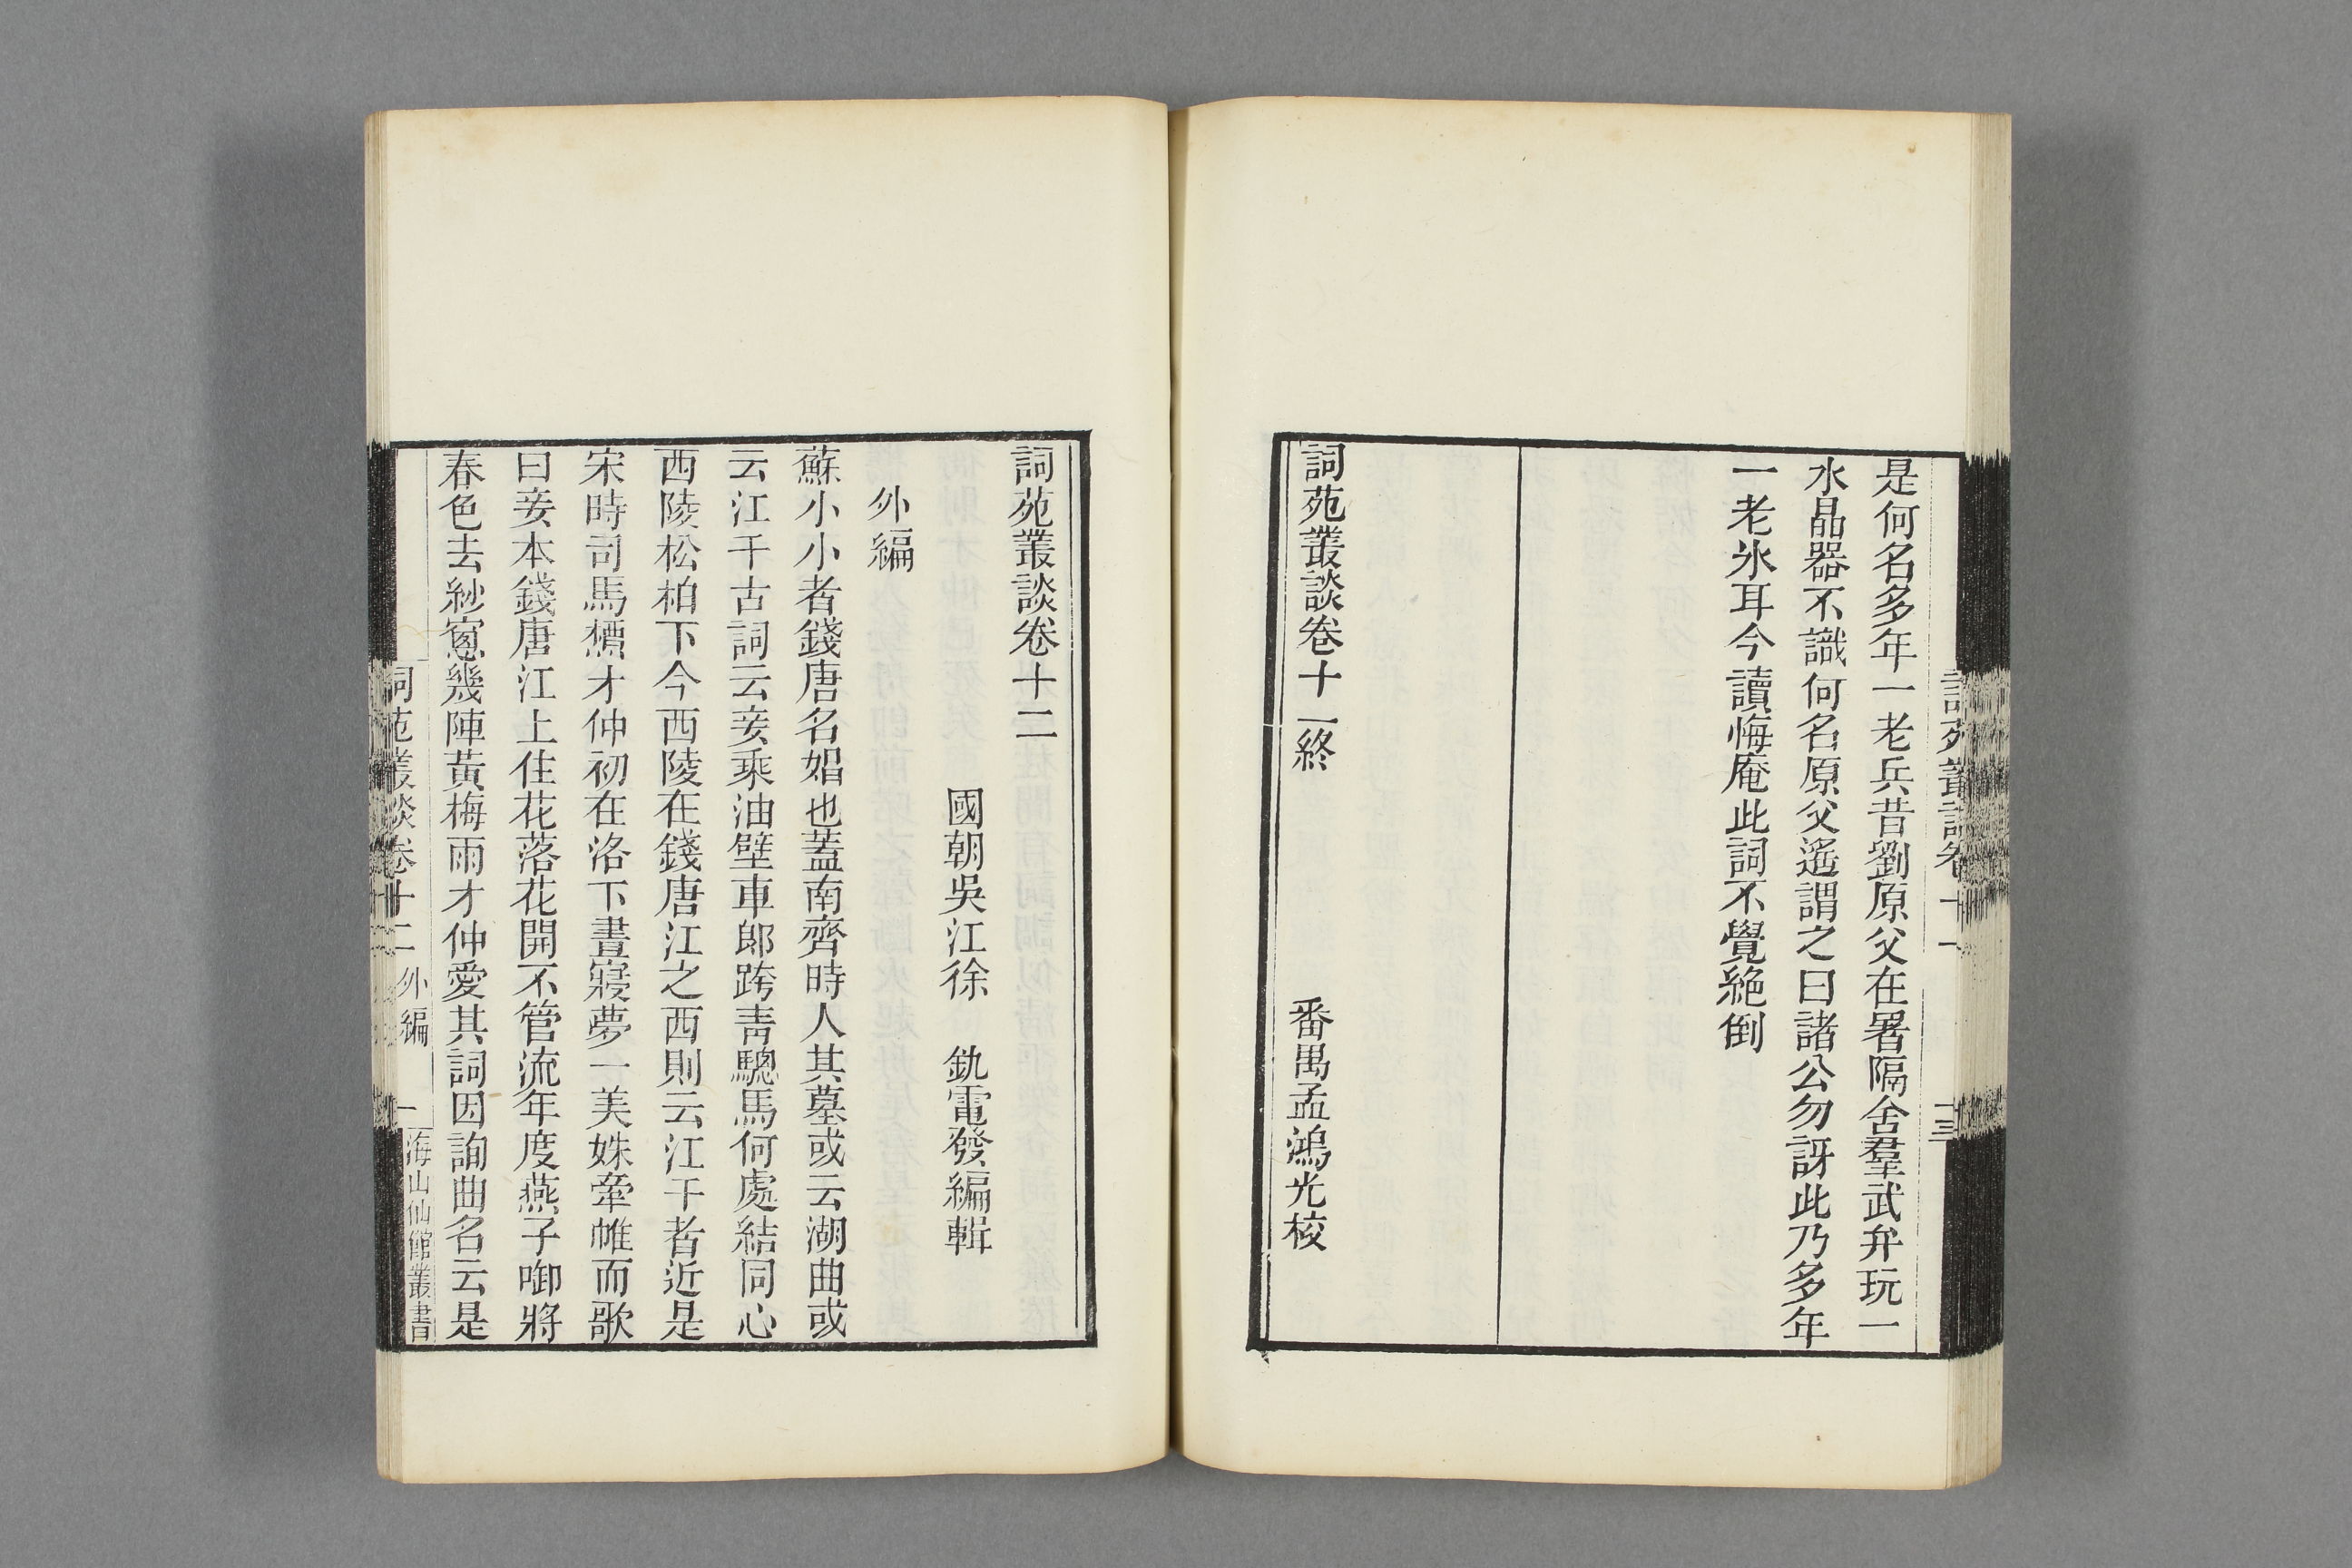 是何名多年一老兵昔劉原父在署隔舍羣武弁玩一
水晶器不識何名原父遙謂之曰諸公勿訝此乃多年
一老氷耳今讀悔庵此詞不覺絕倒
詞苑叢談卷十一終
番禺孟鴻光校
詞苑叢談卷十一
十三
詞苑叢談卷十二
國朝吳江徐 釚電發編輯
外編
蘇小小者錢唐名娼也蓋南齊時人其墓或云湖曲或
云江干古詞云妾乘油壁車郎跨靑驄馬何處結同心
西陵松柏下今西陵在錢唐江之西則云江干者近是
宋時司馬槱才仲初在洛下晝寢夢一美姝牽帷而歌
曰妾本錢唐江上住花落花開不管流年度燕子啣將
春色去紗窻幾陣黃梅雨才仲愛其詞因詢曲名云是
詞苑叢談卷十二 外編
一
海山仙館叢書